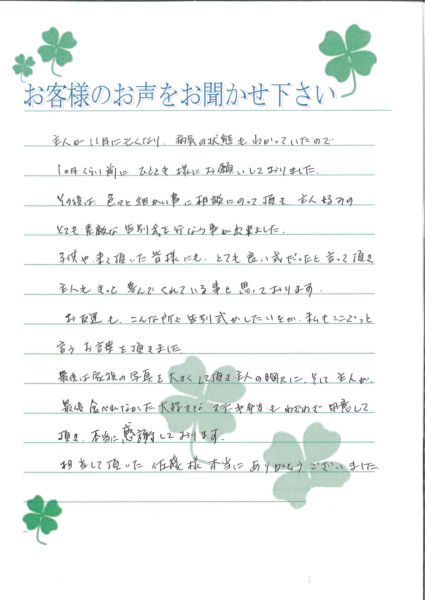 お客様のお声をお聞かせ下さい
主人が11月に亡くなり、病気の状態もわかっていたので
10月くらい前にひととき様にお願いしておりました。
その後は、色々と細かい事に相談にのって頂き、主人好みの
とても素敵な告別式を行なう事が出来ました。
子供や来て頂いた皆様にも、とても良い式だったと言って頂き
主人もきっと喜んでくれている事と思っております。
お友達も、こんな所で告別式がしたいとか、私もここでっと
言うお言葉を頂きました
最後は家族の写真を大きくして頂き主人の胸元に、そして主人が、
最後食べれなかった大好きなステーキ弁当もわざわざ用意して
頂き、本当に感謝しております。
担当して頂いた佐藤様本当にありがとうございました